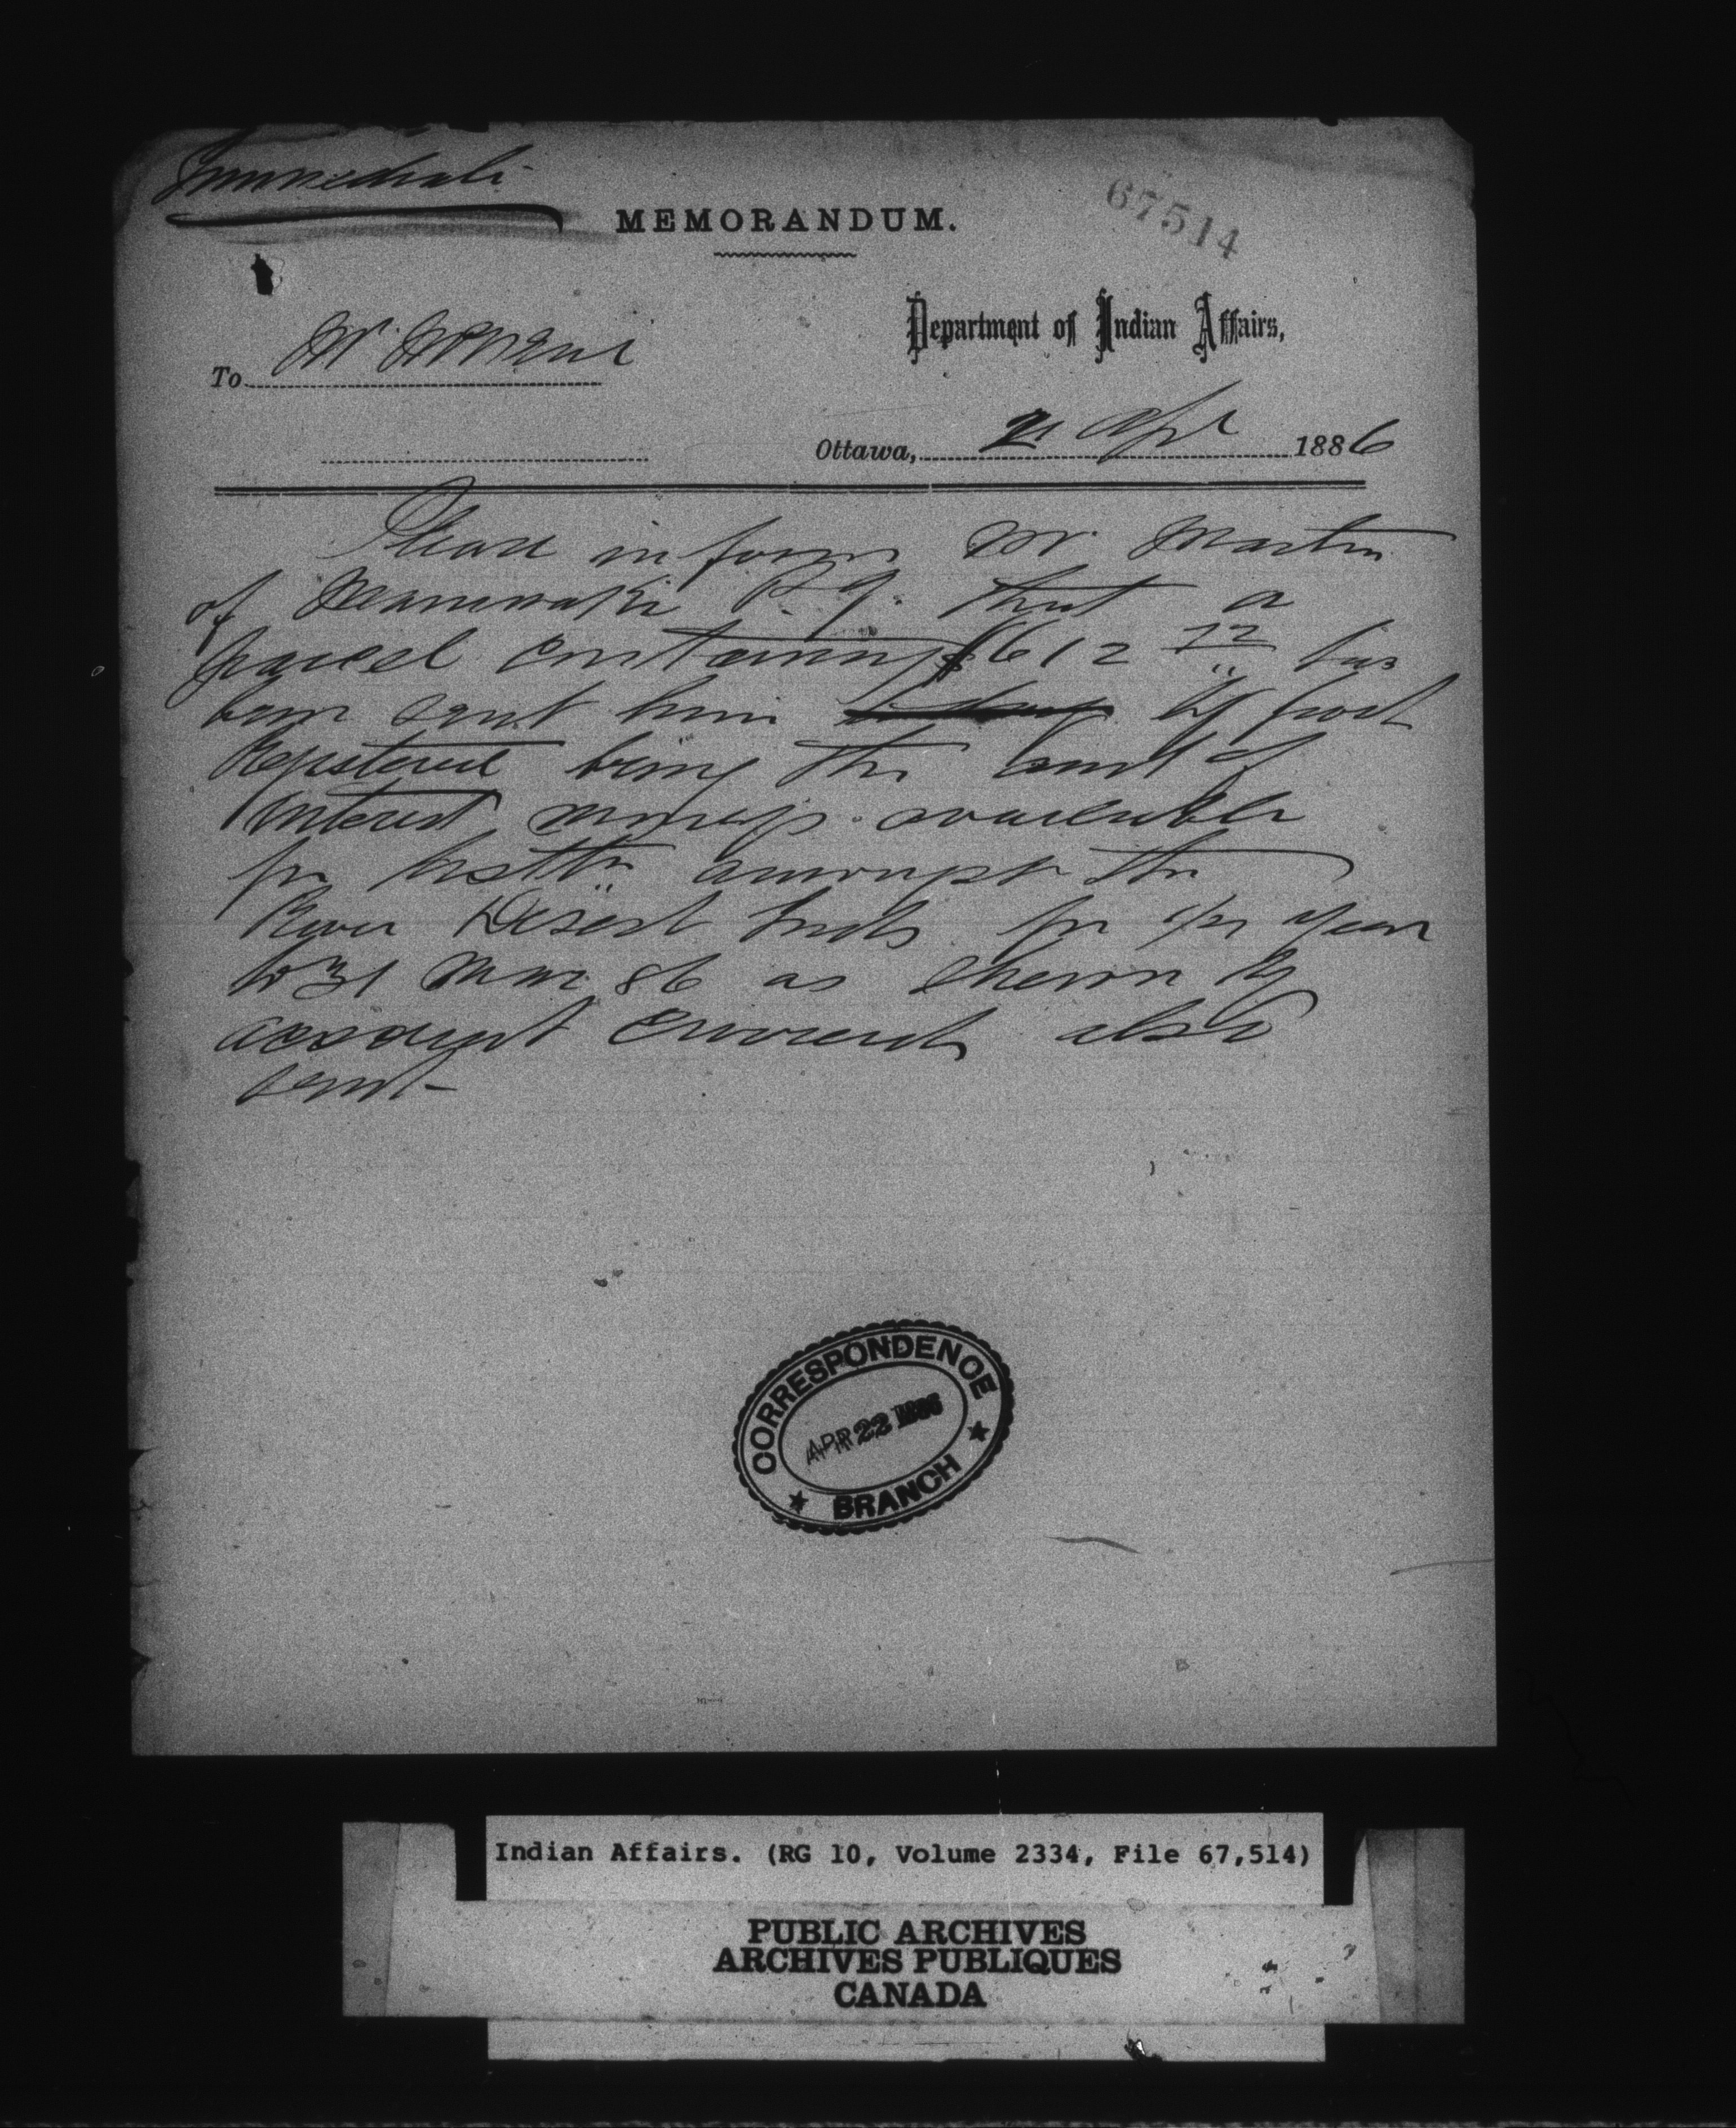 Immediate
MEMORANDUM.
67514
Department of Indian Affairs,
To Mr.
Ottawa, 21 Apl 1886
Please inform Mr. Martin
of Maniwaki P.Q. that a
parcel containing $612 72/" has
been sent him by post
Registered being the amt of
interest moneys available
for distbn amongst the
River Desert Inds for ½ year
to 31 Mar 86 as shewn by
account current also
sent-
CORRESPONDENCE
APR 22 1886
BRANCH
Indian Affairs. (RG 10, Volume 2334, File 67,514)
PUBLIC ARCHIVES
ARCHIVES PUBLIQUES
CANADA